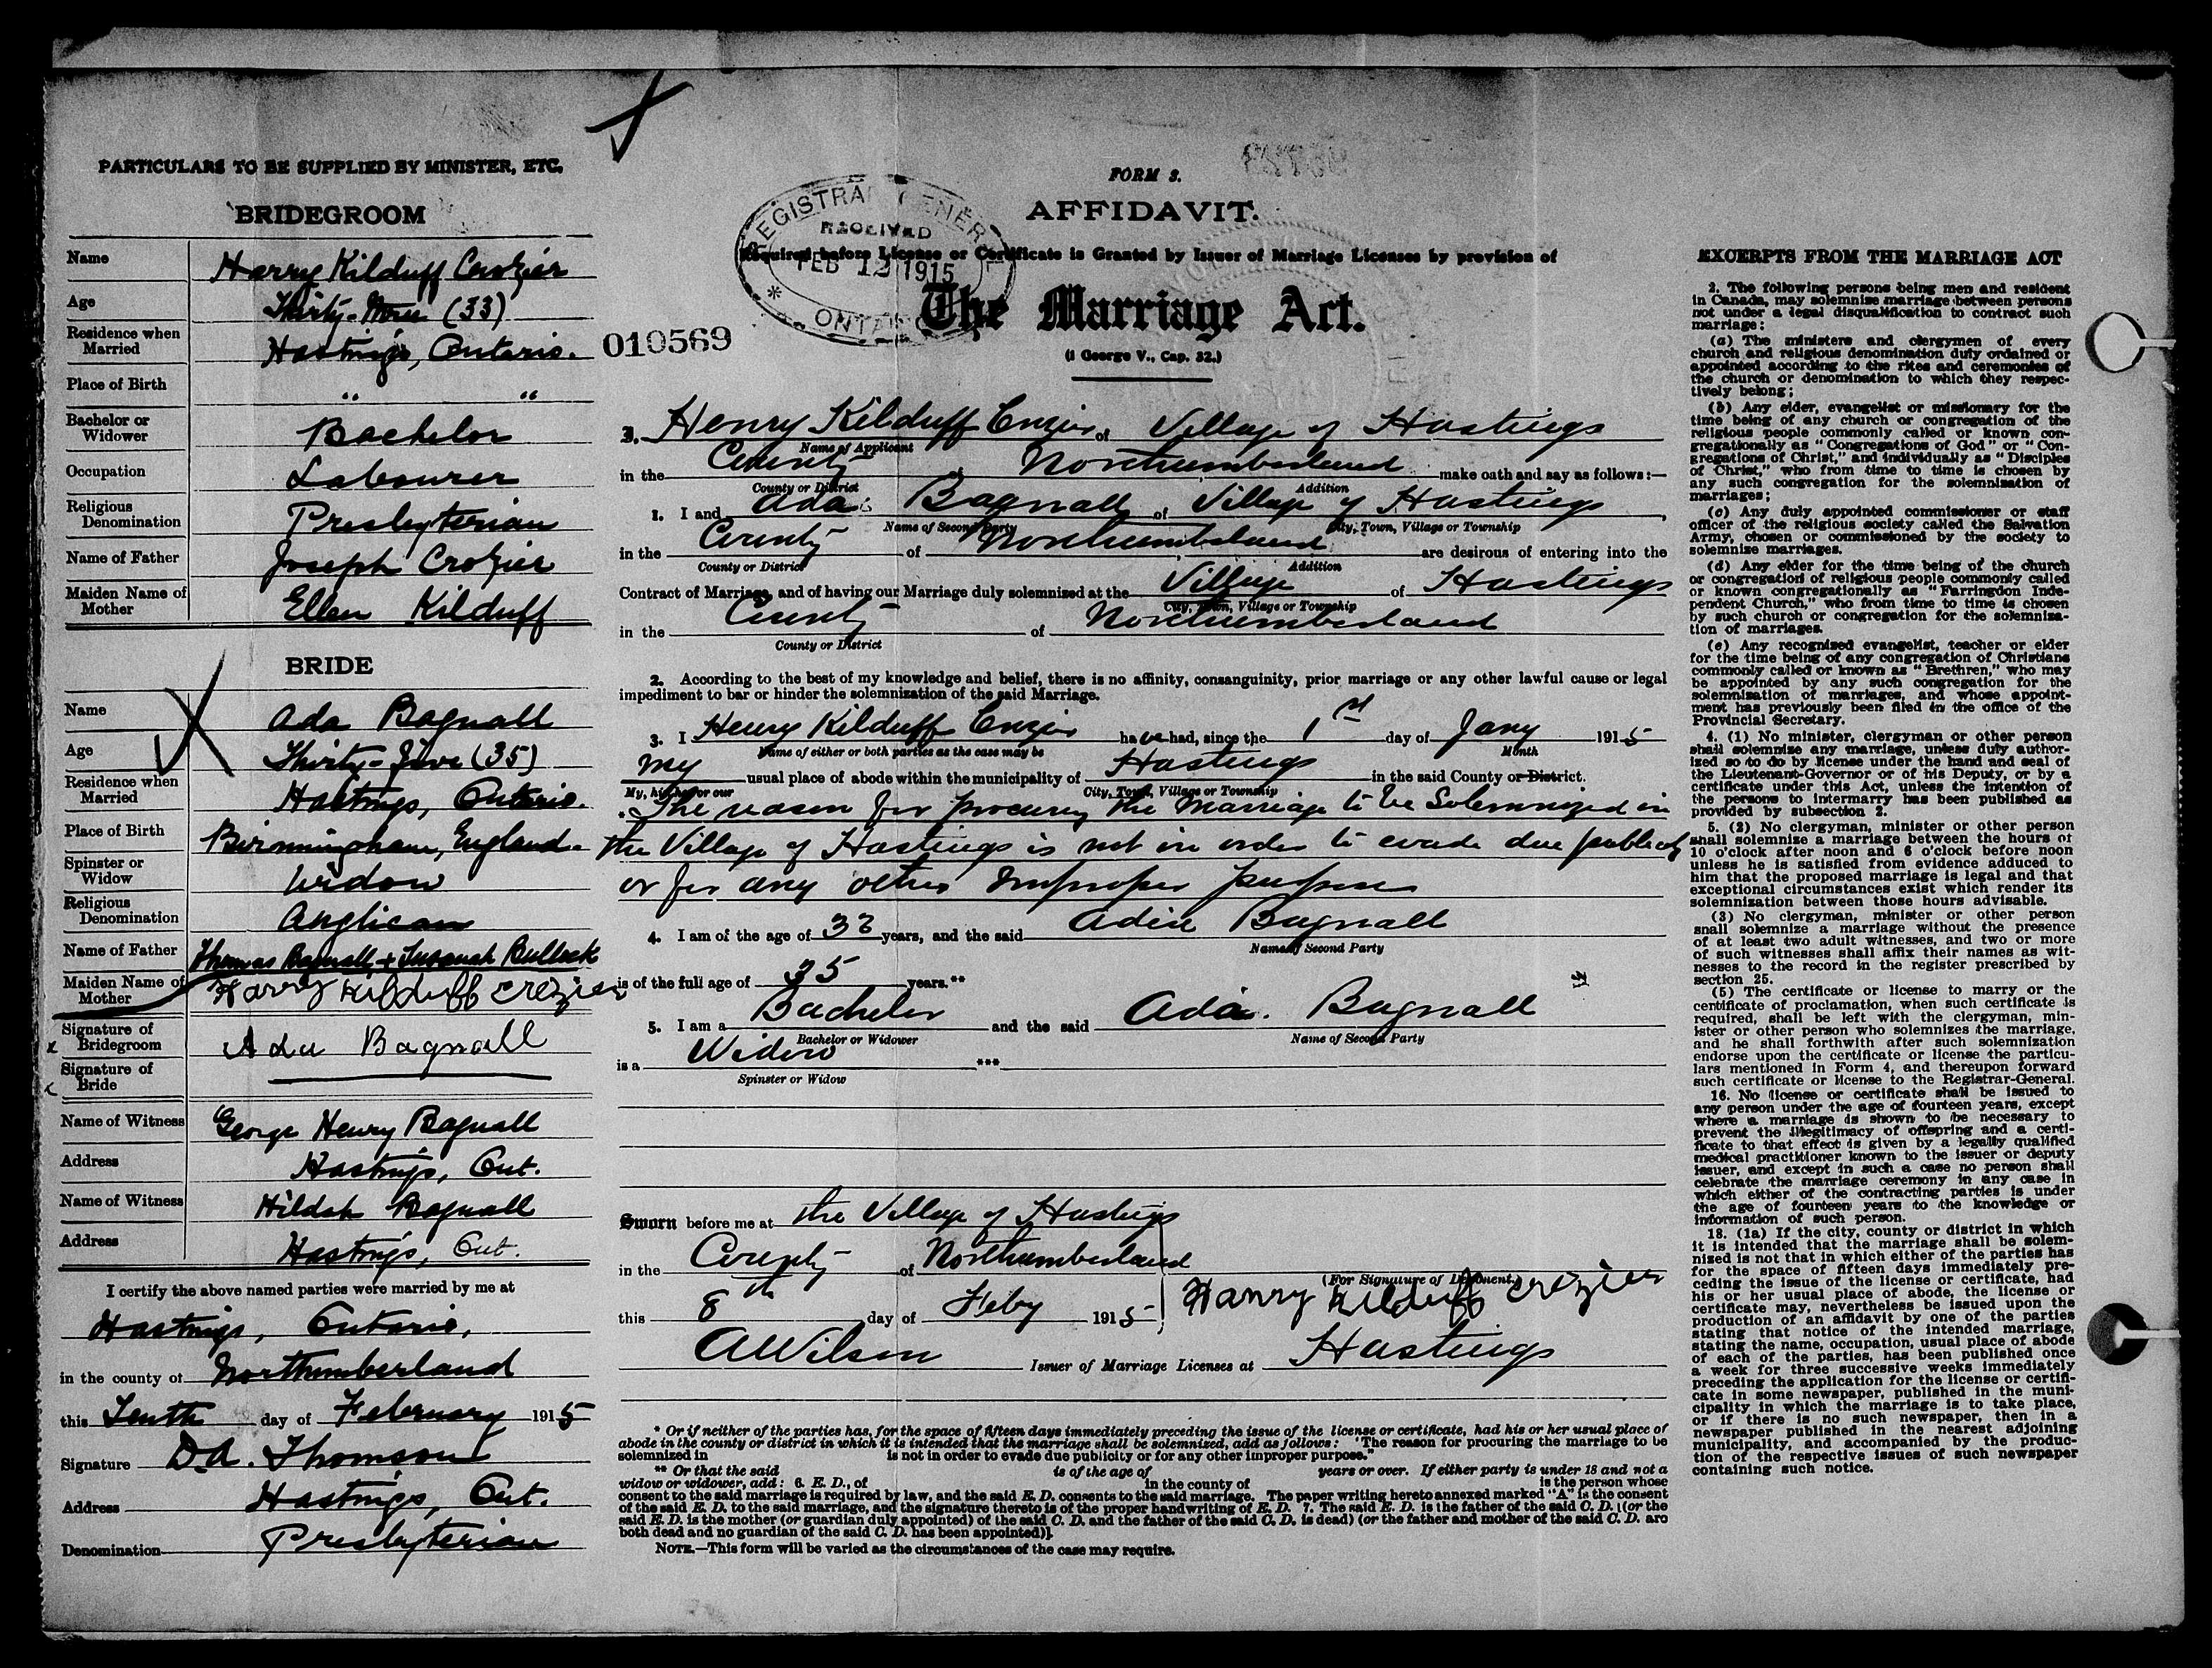 PARTICULARS TO BE SUPPLIED BY MINISTER, ETC.
BRIDEGROOM
Name Harry Kilduff Crozier
Age Thirty-three (33)
Residence when Married Hastings, Ontario.
Place of Birth " "
Bachelor or Widower Bachelor
Occupation Labourer
Religious Denomination Presbyterian
Name of Father Joseph Crozier
Maiden Name of Mother Ellen Kilduff
BRIDE
Name Ada Bagnall
Age Thirty-five (35)
Residence when Married Hastings, Ontario.
Place of Birth Birmingham, England.
Spinster or Widow Widow
Religious Denomination Anglican
Name of Father Thomas Bagnall + Susanah Bullock
Maiden Name of Mother
Harry Kilduff Crozier
Signature of Bridegroom
Ada Bagnall
Signature of Bride
Name of Witness George Henry Bagnall
Address Hastings, Ont.
Name of Witness Hildah Bagnall
Address Hastings, Ont.
I certify the above named parties were married by me at
Hastings, Ontario,
in the county of Northumberland
this Tenth day of February 1915
Signature D.A. Thomson
Address Hastings, Ont.
Denomination Presbyterian
FORM 3.
AFFIDAVIT.
REGISTRAR GENERAL
RECEIVED
FEB 12 1915
ONTARIO
Required before License or Certificate is Granted by Issuer of Marriage Licenses by provision of
The Marriage Act.
010569
(1 George V., Cap. 32.)
3. Henry Kilduff Crozier of Village of Hastings
Name of Applicant
in the County Northumberland make oath and say as follows:—
County or District Addition
1. I and Ada Bagnall of Village of Hastings
Name of Second Party City, Town, Village or Township
in the County of Northumberland are desirous of entering into the
County or District Addition
Contract of Marriage, and of having our Marriage duly solemnized at the Village of Hastings
City, Town, Village or Township
in the County of Northumberland
County or District
2. According to the best of my knowledge and belief, there is no affinity, consanguinity, prior marriage or any other lawful cause or legal
impediment to bar or hinder the solemnization of the said Marriage.
3. I Henry Kilduff Crozier have had, since the 1st day of Jany 1915
Name of either or both parties as the case may be Month
My usual place of abode within the municipality of Hastings in the said County or District.
My, his, her or our City, Town, Village or Township
The reason for procuring the Marriage to be Solemnized in
the Village of Hastings is not in order to evade due publicity
or for any other Improper purpose
4. I am of the age of 33 years, and the said Ada Bagnall
Name of Second Party
is of the full age of 35 years.**
5. I am a Bachelor and the said Ada. Bagnall
Bachelor or Widower Name of Second Party
is a Widow ***
Spinster or Widow
Sworn before me at the Village of Hastings
in the County of Northumberland
(For Signature of Deponent.)
this 8th day of Feby 1915 Harry Kilduff Crozier
A Wilson Issuer of Marriage Licenses at Hastings
* Or if neither of the parties has, for the space of fifteen days immediately preceding the issue of the license or certificate, had his or her usual place of
abode in the county or district in which it is intended that the marriage shall be solemnized, add as follows: "The reason for procuring the marriage to be
solemnized in is not in order to evade due publicity or for any other improper purpose."
** Or that the said is of the age of years or over. If either party is under 18 and not a
widow or widower, add: 6. E. D., of in the county of is the person whose
consent to the said marriage is required by law, and the said E. D. consents to the said marriage. The paper writing hereto annexed marked "A" is the consent
of the said E. D. to the said marriage, and the signature thereto is of the proper handwriting of E. D. 7. The said E. D. is the father of the said C. D. [(or the
said E. D. is the mother (or guardian duly appointed) of the said C. D. and the father of the said C. D. is dead) (or the father and mother of the said C. D. are
both dead and no guardian of the said C. D. has been appointed)].
NOTE.—This form will be varied as the circumstances of the case may require.
EXCERPTS FROM THE MARRIAGE ACT
2. The following persons being men and resident
in Canada, may solemnize marriage between persons
not under a legal disqualification to contract such
marriage:
(a) The ministers and clergymen of every
church and religious denomination duly ordained or
appointed according to the rites and ceremonies of
the church or denomination to which they respec-
tively belong;
(b) Any elder, evangelist or missionary for the
time being of any church or congregation of the
religious people commonly called or known con-
gregationally as "Congregations of God" or "Con-
gregations of Christ," and individually as "Disciples
of Christ," who from time to time is chosen by
any such congregation for the solemnization of
marriages;
(c) Any duly appointed commissioner or staff
officer of the religious society called the Salvation
Army, chosen or commissioned by the society to
solemnize marriages.
(d) Any elder for the time being of the church
or congregation of religious people commonly called
or known congregationally as "Farringdon Inde-
pendent Church," who from time to time is chosen
by such church or congregation for the solemniza-
tion of marriages.
(e) Any recognised evangelist, teacher or elder
for the time being of any congregation of Christians
commonly called or known as "Brethren," who may
be appointed by any such congregation for the
solemnization of marriages, and whose appoint-
ment has previously been filed in the office of the
Provincial Secretary.
4. (1) No minister, clergyman or other person
shall solemnize any marriage, unless duly author-
ized so to do by license under the hand and seal of
the Lieutenant-Governor or of his Deputy, or by a
certificate under this Act, unless the intention of
the persons to intermarry has been published as
provided by subsection 2.
5. (2) No clergyman, minister or other person
shall solemnize a marriage between the hours of
10 o'clock after noon and 6 o'clock before noon
unless he is satisfied from evidence adduced to
him that the proposed marriage is legal and that
exceptional circumstances exist which render its
solemnization between those hours advisable.
(3) No clergyman, minister or other person
shall solemnize a marriage without the presence
of at least two adult witnesses, and two or more
of such witnesses shall affix their names as wit-
nesses to the record in the register prescribed by
section 25.
(5) The certificate or license to marry or the
certificate of proclamation, when such certificate is
required, shall be left with the clergyman, min-
ister or other person who solemnizes the marriage,
and he shall forthwith after such solemnization
endorse upon the certificate or license the particu-
lars mentioned in Form 4, and thereupon forward
such certificate or license to the Registrar-General.
16. No license or certificate shall be issued to
any person under the age of fourteen years, except
where a marriage is shown to be necessary to
prevent the illegitimacy of offspring and a certi-
ficate to that effect is given by a legally qualified
medical practitioner known to the issuer or deputy
issuer, and except in such a case no person shall
celebrate the marriage ceremony in any case in
which either of the contracting parties is under
the age of fourteen years to the knowledge or
information of such person.
18. (1a) If the city, county or district in which
it is intended that the marriage shall be solem-
nized is not that in which either of the parties has
for the space of fifteen days immediately pre-
ceding the issue of the license or certificate, had
his or her usual place of abode, the license or
certificate may, nevertheless be issued upon the
production of an affidavit by one of the parties
stating that notice of the intended marriage,
stating the name, occupation, usual place of abode
of each of the parties, has been published once
a week for three successive weeks immediately
preceding the application for the license or certifi-
cate in some newspaper, published in the muni-
cipality in which the marriage is to take place,
or if there is no such newspaper, then in a
newspaper published in the nearest adjoining
municipality, and accompanied by the produc-
tion of the respective issues of such newspaper
containing such notice.